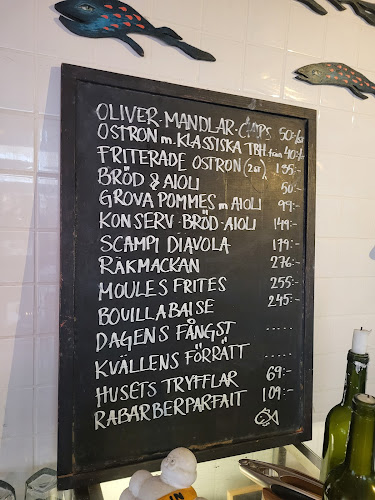 OLIVER-MANDLAR-CHIPS 50:-/st
OSTRON m. KLASSISKA TBH. från 40:-/st
FRITERADE OSTRON (2st) 135:-
BRÖD & AIOLI 50:-
GROVA POMMES m AIOLI 99:-
KONSERV-BRÖD-AIOLI 149:-
SCAMPI DIAVOLA 179:-
RÄKMACKAN 276:-
MOULES FRITES 255:-
BOUILLABAISE 245:-
DAGENS FÅNGST -----
KVÄLLENS FÖRRÄTT -----
HUSETS TRYFFLAR 69:-
RABARBERPARFAIT 109:-